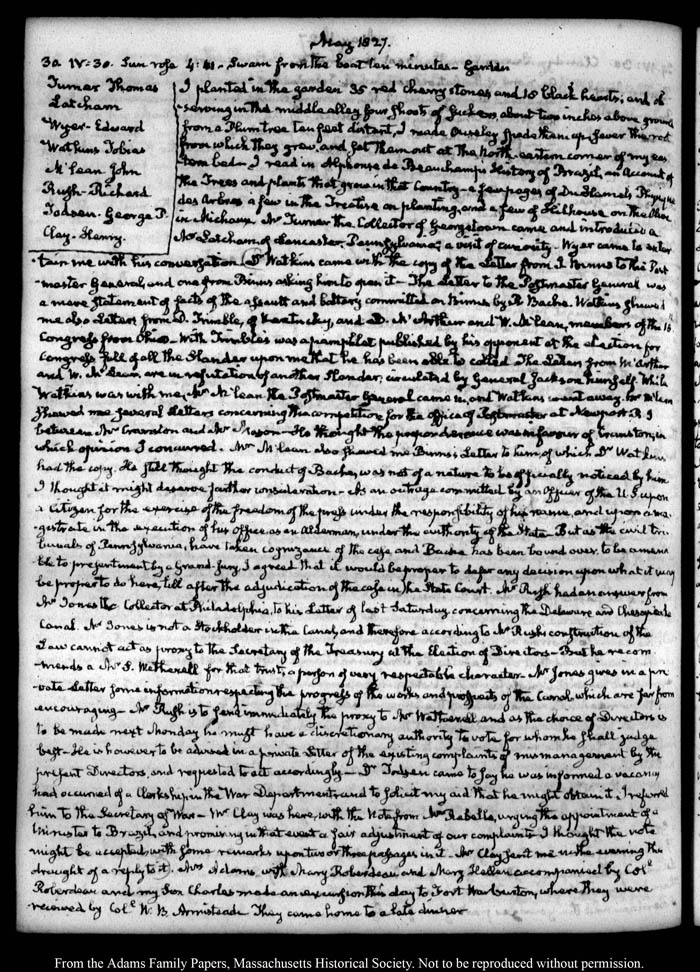 May 1827.
30. IV:30. Sun rose 4:41. Swam from the boat ten minutes – Garden
Turner Thomas
Latcham
Wyer – Edward
Watkins Tobias
McLean John
Rush – Richard
Todsen – George P.
Clay – Henry.
I planted in the garden 35 red cherry stones and 10 black hearts; and ob
serving in the middle alley four shoots of suckers, about two inches above ground
from a Plum tree ten feet distant, I made Ouseley spade them up, sever the root
from which they grew, and set them out at the North-eastern corner of my eas
tern bed – I read in Alphonse de Beauchamp's History of Brazil, an Account of
the Trees and plants that grow in that Country – a few pages of Du Hamel's Physique
des Arbres a few in the Treatise on planting, and a few of Hillhouse on the Olive
in Michaux. Mr Turner the Collector of Georgetown came and introduced a
Mr Latcham of Lancaster, Pennsylvania; a visit of curiosity – Wyer came to enter
tain me with his conversation. Dr Watkins came with the copy of the Letter from J. Binns to the Post
master General, and one from Binns asking him to open it – The Letter to the Postmaster General was
a mere statement of facts of the assault and battery committed on Binns by R Bache. Watkins shewed
me also Letters from D. Trimble, of Kentucky, and D. McArthur and W. McLean, members of the
Congress from Ohio – With Trimble's was a pamphlet published by his opponent at the election for
Congress full of all the slander upon me that he has been able to collect. The Letters from McArthur
and W. McLean, are in refutation of another slander, circulated by General Jackson himself. While
Watkins was with me, Mr McLean the Postmaster General came in, and Watkins went away. Mr McLean
shewed me several Letters concerning the competition for the office of Postmaster at Newport R. I
between Mr Cranston and Mr Mason – He thought the preponderance was in favour of Cranston, in
which opinion I concurred. Mr McLean also shewed me Binns's Letter to him, of which Dr Watkins
had the copy. He still thought the conduct of Bache, was not of a nature to be officially noticed by him
I thought it might deserve further consideration – As an outrage committed by an Officer of the U.S. upon
a Citizen for the exercise of the freedom of the press under the responsibility of his name, and upon a ma
gistrate in the execution of his office as an Alderman, under the authority of the State – But as the civil tri
bunals of Pennsylvania, have taken cognizance of the case and Bache has been bound over, to be amena
ble to presentment by a Grand-Jury, I agreed that it would be proper to defer any decision upon what it may
be proper to do here, till after the adjudication of the case in the State Court. Mr Rush had an answer from
Mr Jones the Collector at Philadelphia, to his Letter of last Saturday concerning the Delaware and Chesapeake
Canal. Mr Jones is not a Stockholder in the Canal, and therefore according to Mr Rush's construction of the
Law cannot act as proxy to the Secretary of the Treasury at the Election of Directors – But he recom
mends a Mr S. Wetherell for that trust, a person of very respectable character – Mr Jones gives in a pri
vate Letter some information respecting the progress of the works and prospects of the Canal which are far from
encouraging – Mr Rush is to send immediately the proxy to Mr Wetherell and as the choice of Directors is
to be made next Monday he must have a discretionary authority to vote for whom he shall judge
best – He is however to be advised in a private Letter of the existing complaints of mismanagement by the
present Directors, and requested to act accordingly – Dr Todsen came to say he was informed a vacancy
had occurred of a Clerkship in the War Department, and to solicit my aid that he might obtain it. I referred
him to the Secretary of War – Mr Clay was here, with the Note from Mr Rebello, urging the appointment of a
Minister to Brazil, and promising in that event a fair adjustment of our complaints – I thought the note
might be accepted, with some remarks upon two or three passages in it. Mr Clay sent me in the evening the
draught of a reply to it. Mrs Adams with Mary Roberdeau and Mary Hellen accompanied by Col.
Roberdeau and my Son Charles made an excursion this day to Fort Warburton, where they were
received by Col. W. B. Armistead. They came home to a late dinner
From the Adams Family Papers, Massachusetts Historical Society. Not to be reproduced without permission.